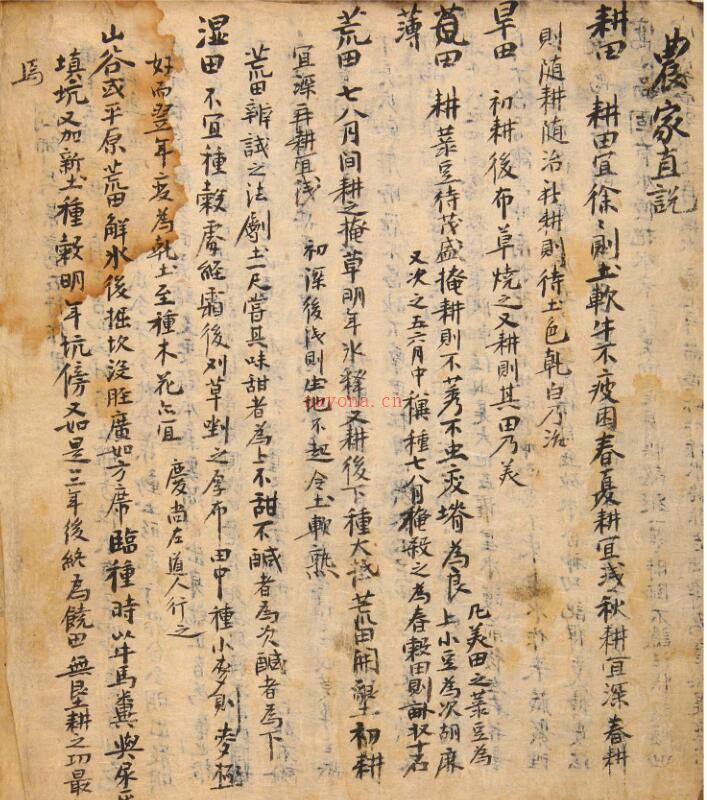 農家直說
耕田 耕田宜徐〻則土軟牛不疲困春夏耕宜浅秋耕宜深春耕
則随耕随治秋耕則待土色乹白乃治
旱田 初耕後布草燒之又耕則其田乃美
田 耕菉豆待茂盛掩耕則不莠不虫变塉為良
凡美田之菉豆為
上小豆為次胡麻
薄
又次之五六月中穊種七八月掩殺之為春穀田則畝収十石
荒田 七八月間耕之掩草明年氷釋又耕後下種大抵荒田開墾初耕
宜深再耕宜浅 初深後浅則生地不起令土軟熟
荒田辨試之法劚土一尺嘗其味甜者為上不甜不鹹者為次鹹者為下
湿田 不宜種穀處經霜後刈草剉之厚布田中種小麥則麥極
好而翌年变為乹土至種木花亦宜 慶尚左道人行之
山谷或平原荒田解氷後掘坎廣如方席臨種時以牛馬糞與尿
填坑又加新土種穀明年坑傍又如是三年後終為饒田無墾耕之功最
焉